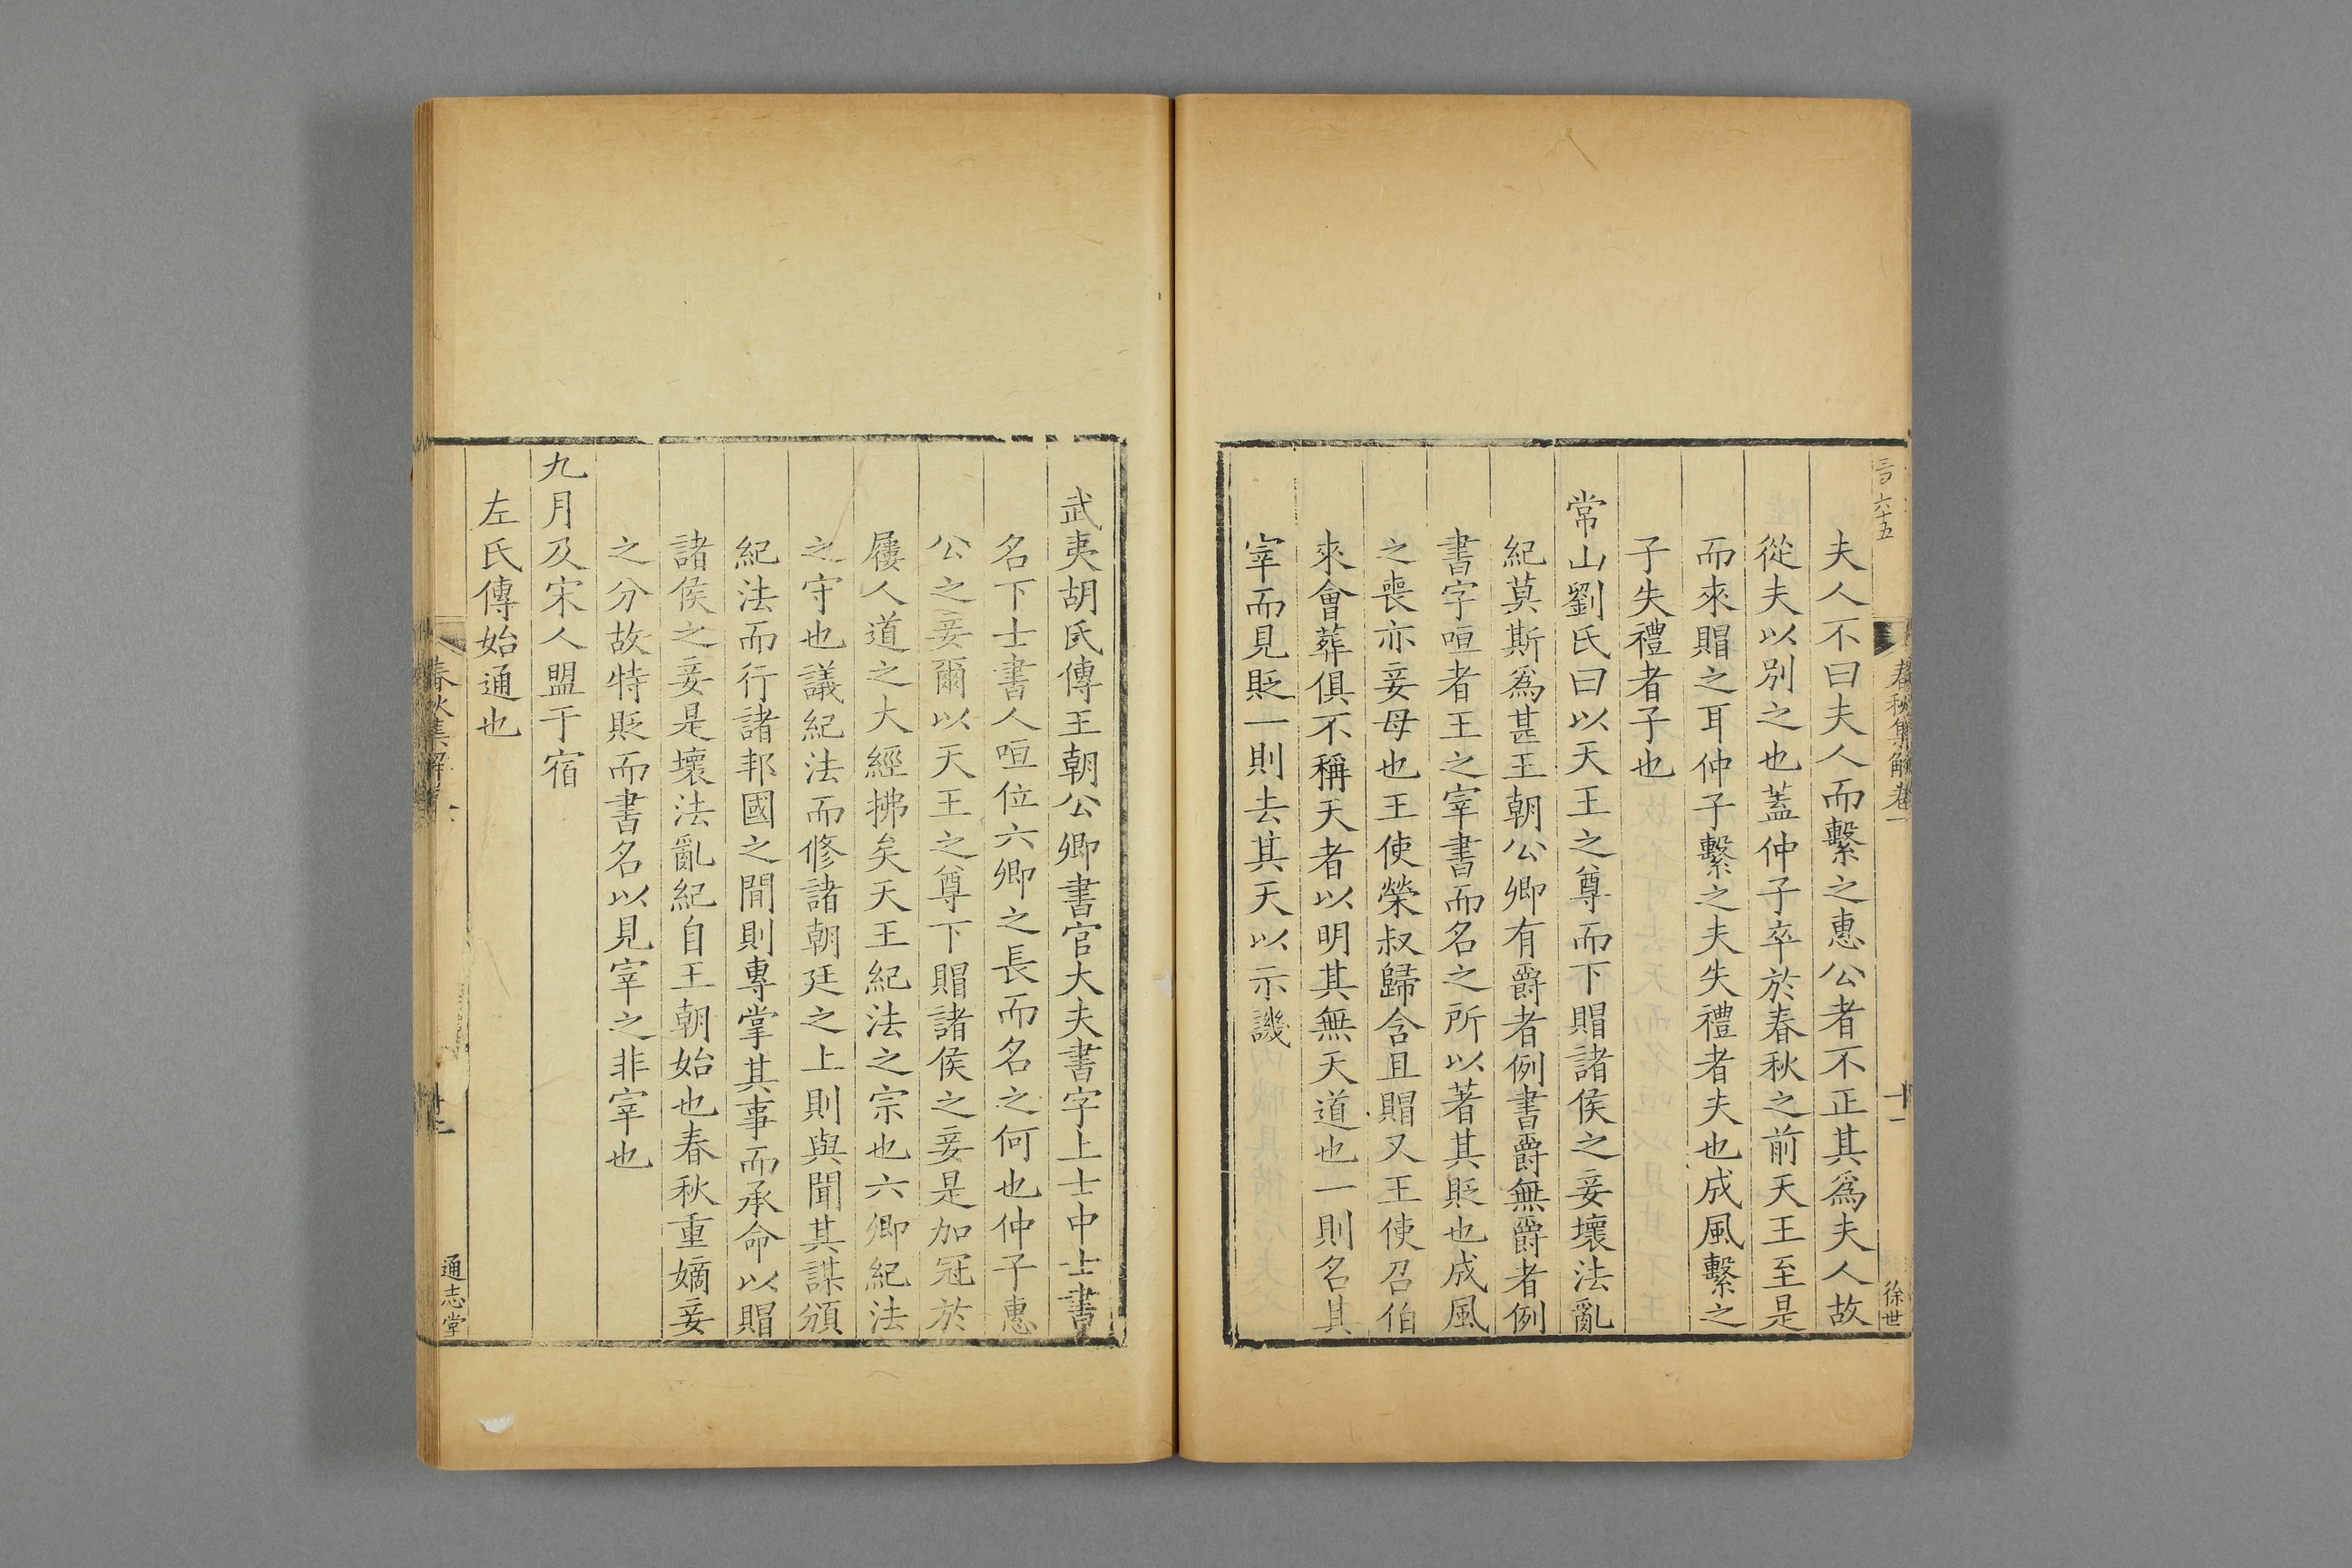 三百六十五
春秋集解卷一
十一
徐世
夫人不曰夫人而繫之惠公者不正其爲夫人故
從夫以別之也蓋仲子卒於春秋之前天王至是
而來賵之耳仲子繫之夫失禮者夫也成風繫之
子失禮者子也
常山劉氏曰以天王之尊而下賵諸侯之妾壞法亂
紀莫斯爲甚王朝公卿有爵者例書爵無爵者例
書字咺者王之宰書而名之所以著其貶也成風
之喪亦妾母也王使榮叔歸含且賵又王使召伯
來會葬俱不稱天者以明其無天道也一則名其
宰而見貶一則去其天以示譏
武夷胡氏傳王朝公卿書官大夫書字上士中士書
名下士書人咺位六卿之長而名之何也仲子惠
公之妾爾以天王之尊下賵諸侯之妾是加冠於
屨人道之大經拂矣天王紀法之宗也六卿紀法
之守也議紀法而修諸朝廷之上則與聞其謀頒
紀法而行諸邦國之間則專掌其事而承命以賵
諸侯之妾是壞法亂紀自王朝始也春秋重嫡妾
之分故特貶而書名以見宰之非宰也
九月及宋人盟于宿
左氏傳始通也
春秋集解
通志堂